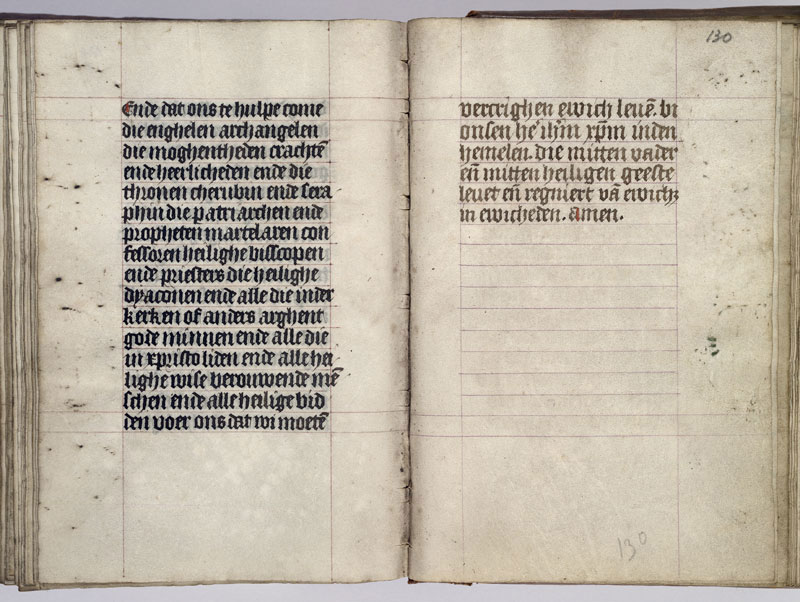 Ende dat ons te hulpe come
die enghelen archangelen
die moghentheden crachtē
ende heerlicheden ende die
thronen cherubin ende sera
phin die patriarchen ende
propheten martelaren con
fessoren heilighe bisscopen
ende priesters die heilighe
dyaconen ende alle die inder
kerken of anders arghent
gode minnen ende alle die
in xpristo liden ende alle hei
lighe wise berouwende mē
schen ende alle heilige bid
den voer ons dat wi moetē
130
vercrighen ewich leuē. bi
onsen he' ihm̄ xpm̄ inden
hemelen. die mitten vader
eñ mitten heiligen geeste
leuet eñ regniert vā ewichꝫ
in ewicheden. amen.
130